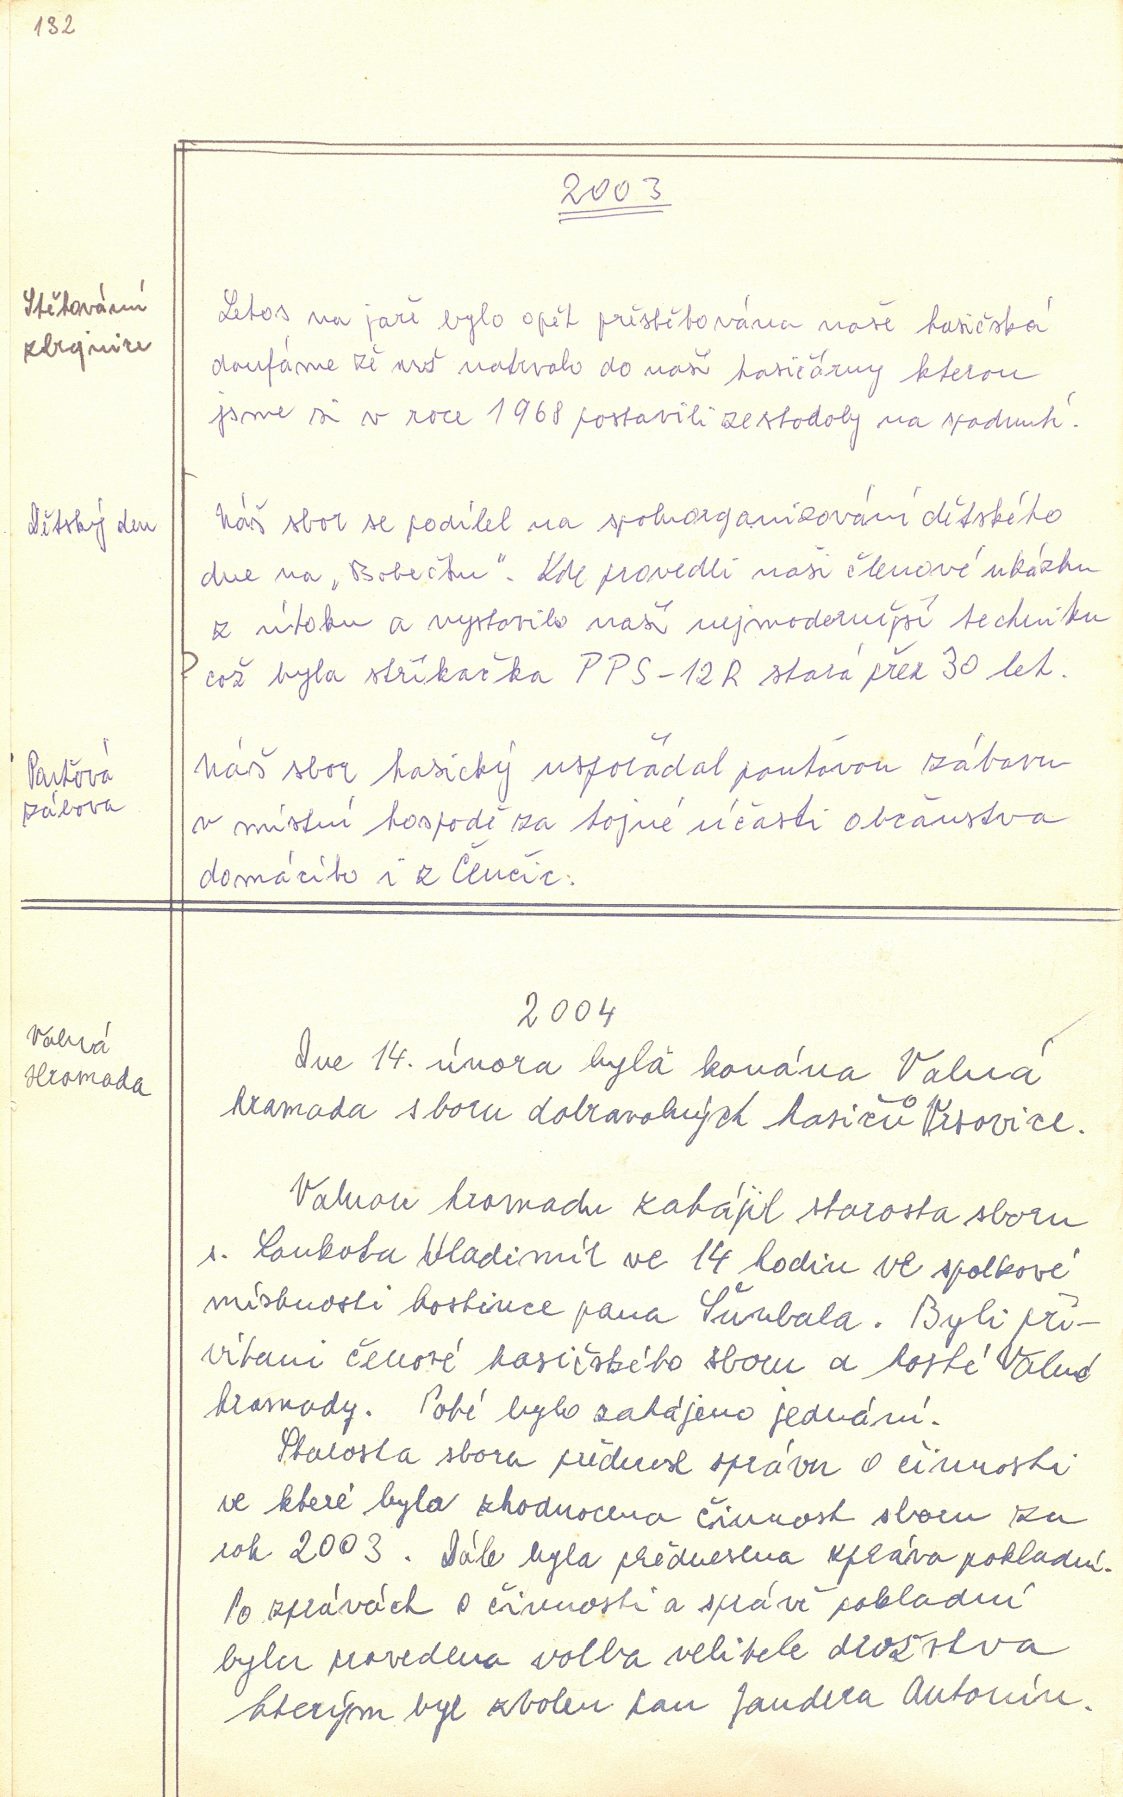 132
2003
Stěhování
zbrojnice
Letos na jaře bylo opět přestěhována naše hasičská
doufáme že už natrvalo do naší hasičárny kterou
jsme si v roce 1968 postavili ze stodoly na spadnutí.
Dětský den
Náš sbor se podílel na spoluorganizování dětského
dne na „Bobečku“. Kde provedli naši členové ukázku
z útoku a vystavilo naší nejmodernější techniku
což byla stříkačka PPS-12R stará přes 30 let.
Pouťová
zábava
Náš sbor hasický uspořádal pouťovou zábavu
v místní hospodě za hojné účasti občanstva
domácího i z Čenčic.
2004
Valná
Hromada
Dne 14. února byla konána Valná
hromada sboru dobrovolných hasičů Vrsovice.
Valnou hromadu zahájil starosta sboru
s. Loukota Vladimír ve 14 hodin ve spolkové
místnosti hostince pana . Byli při-
vítani čenové hasičského sboru a hosté Valné
hromady. Poté bylo zahájeno jednání.
Starosta sboru přednesl správu o činnosti
ve které byla zhodnocena činnost sboru za
rok 2003. Dále byla přednesena zpráva pokladní.
Po zprávách o činnosti a správě pokladní
byla provedena volba velitele družstva
kterým byl zvolen pan Jandera Antonín.